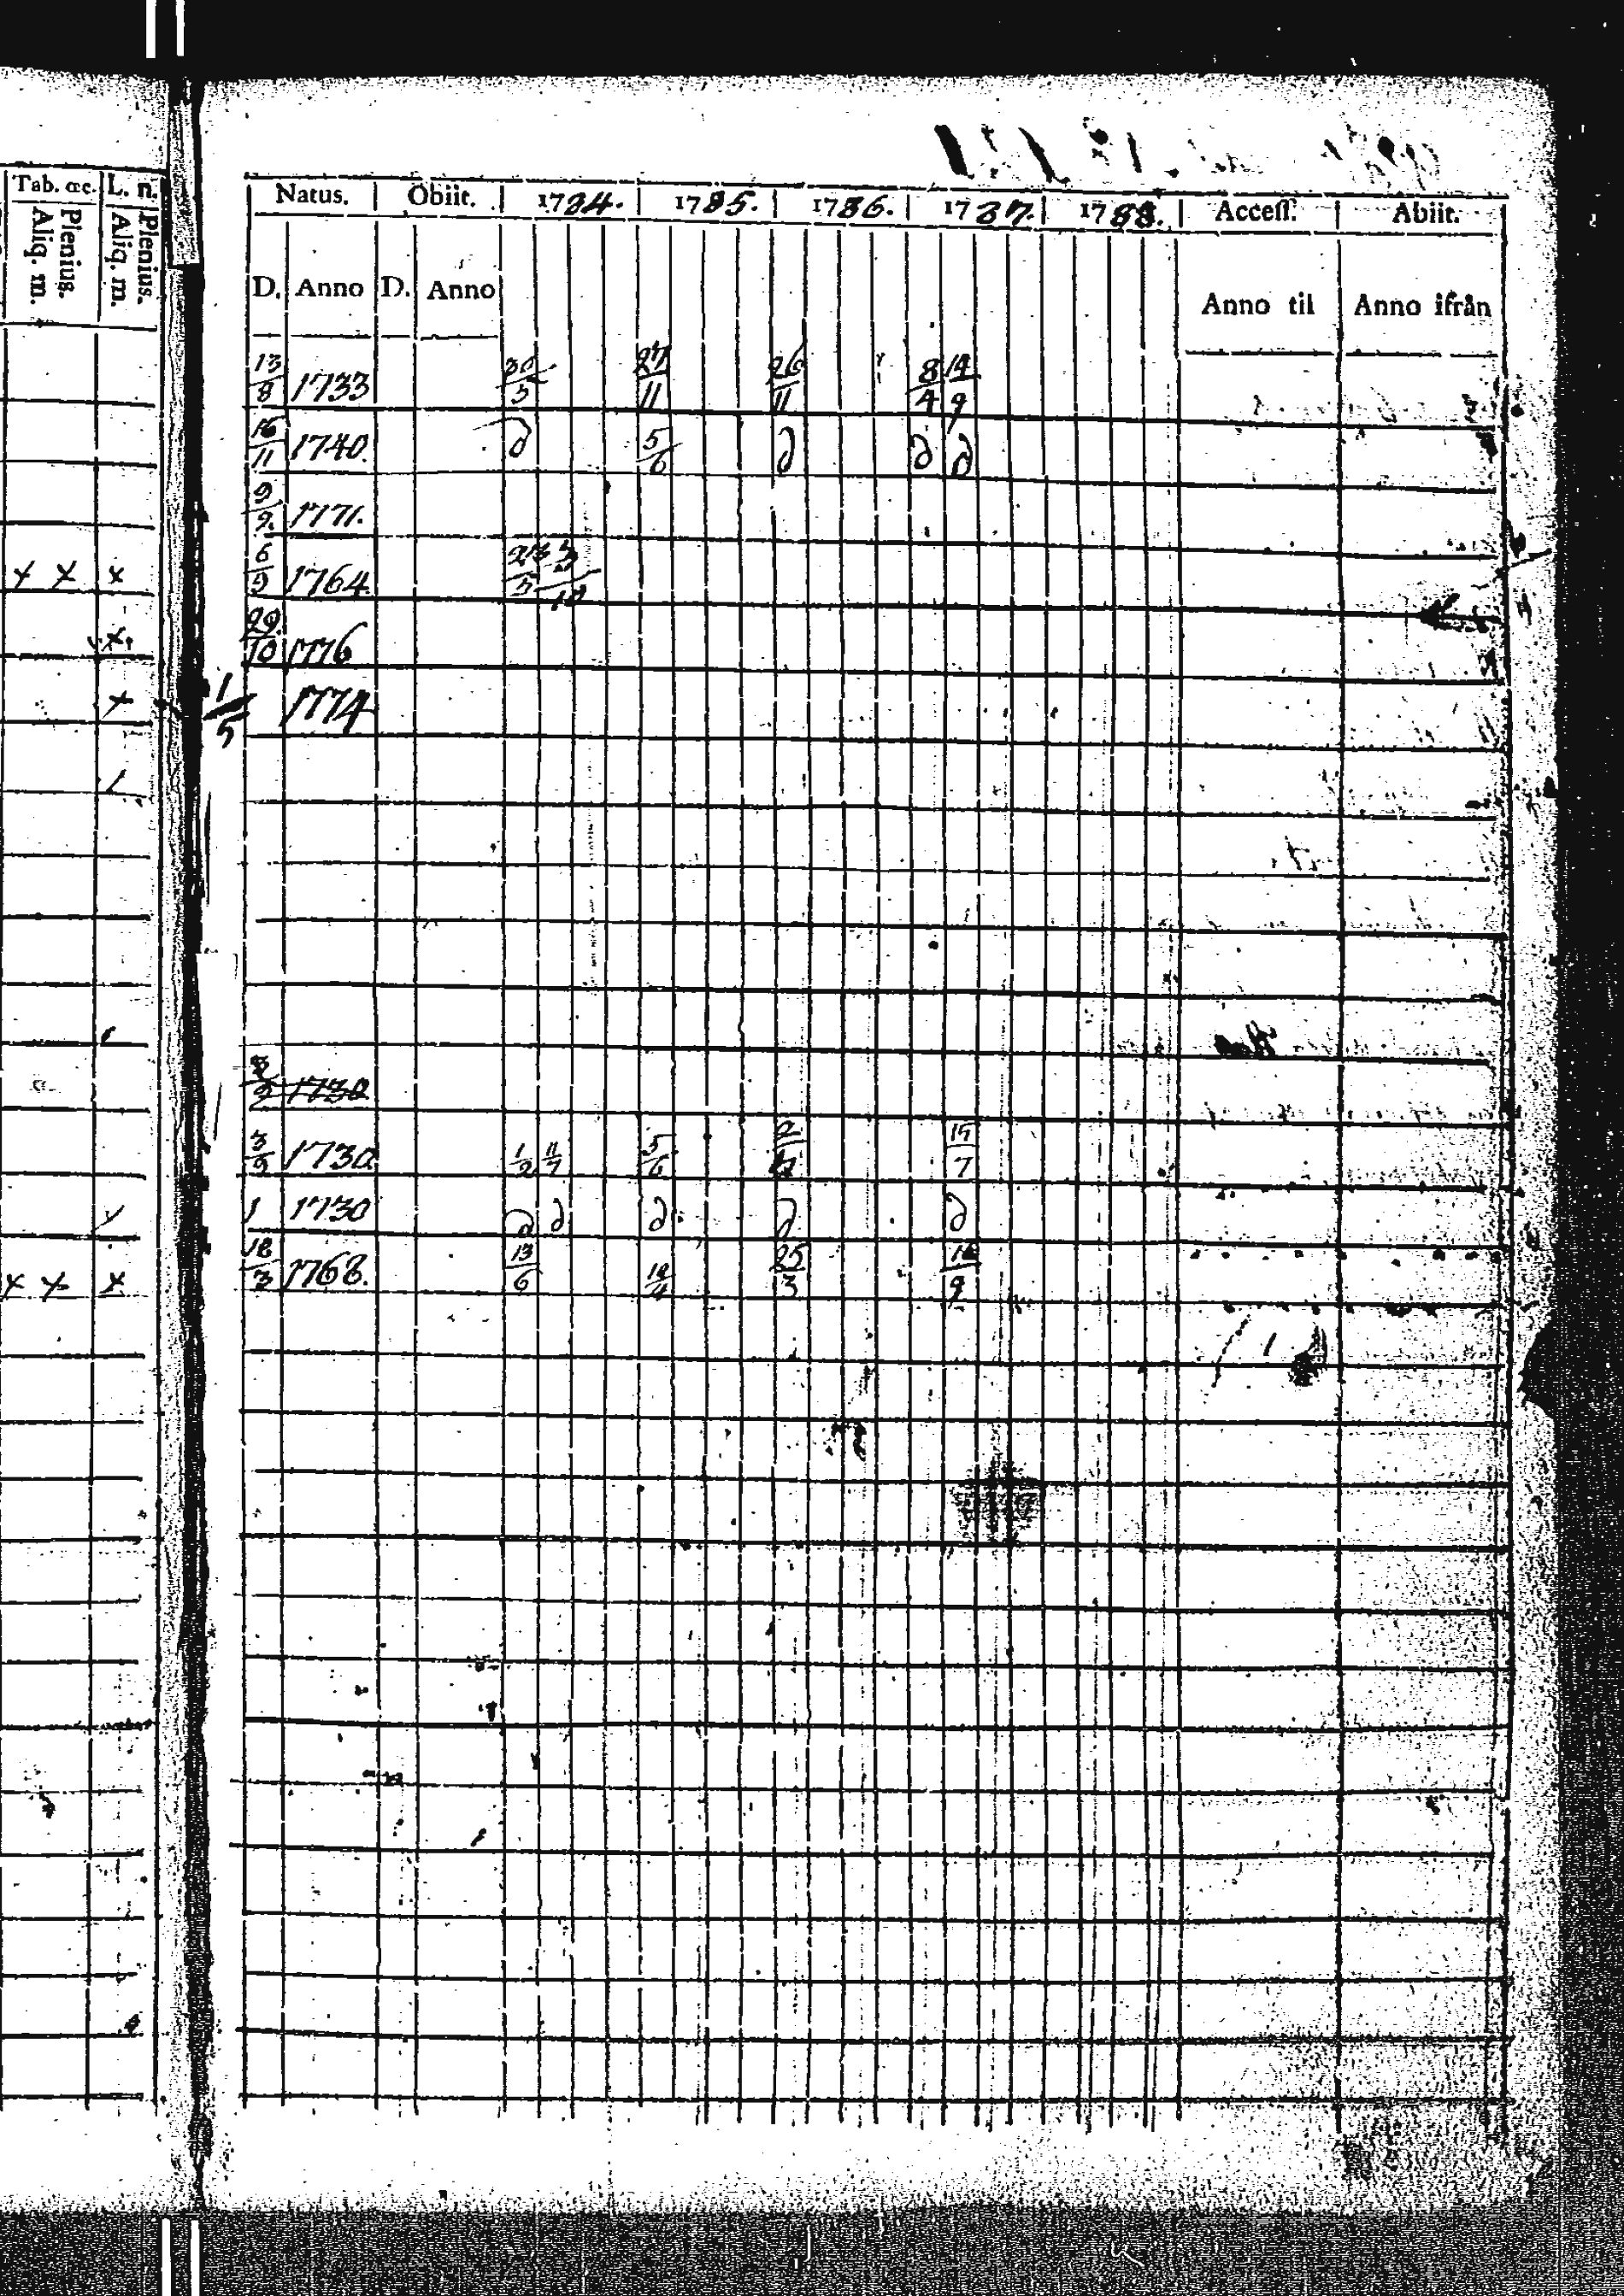 Tab. œc. L. n.
Plenius. Aliq. m. Plenius. Aliq. m.
Natus. Obiit. 1784. 1785. 1786. 1787. 1788. Accesſ. Abiit.
D. Anno D. Anno Anno til Anno ifrån
13/8 1733 30/5 27/11 26/11 8/4 14/9
16/11 1740. d 5/6 d d d
9/9. 1771.
x x x 6/9 1764.
x 29/10 1776
x 1/5 1774
1730
3/9 1730 1/2 11/7 5/6 15/7
1 1730 d d d d d
x x x 18/3 1768. 13/6 18/4 25/3 16/9